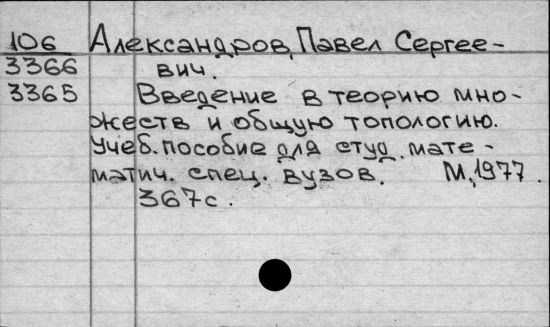 106 Александров, Павел Сергее-
3366 вич.
3365 Введение в теорию мно-
жеств и общую топологию.
Учеб. пособие для студ. мате-
матич. спец. вузов. М., 1977.
367 с.